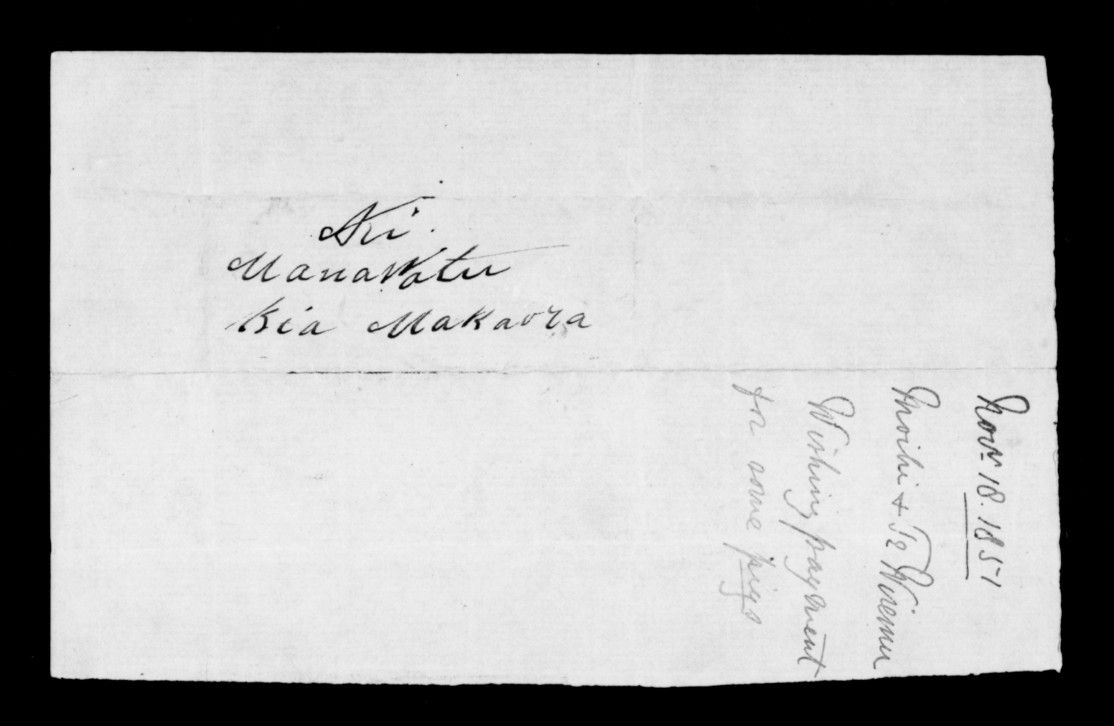 Ki
Manawatu
Kia Makaora
Novr. 18. 1851
Moihi + Te Wiremu
Wishing payment
for some pigs